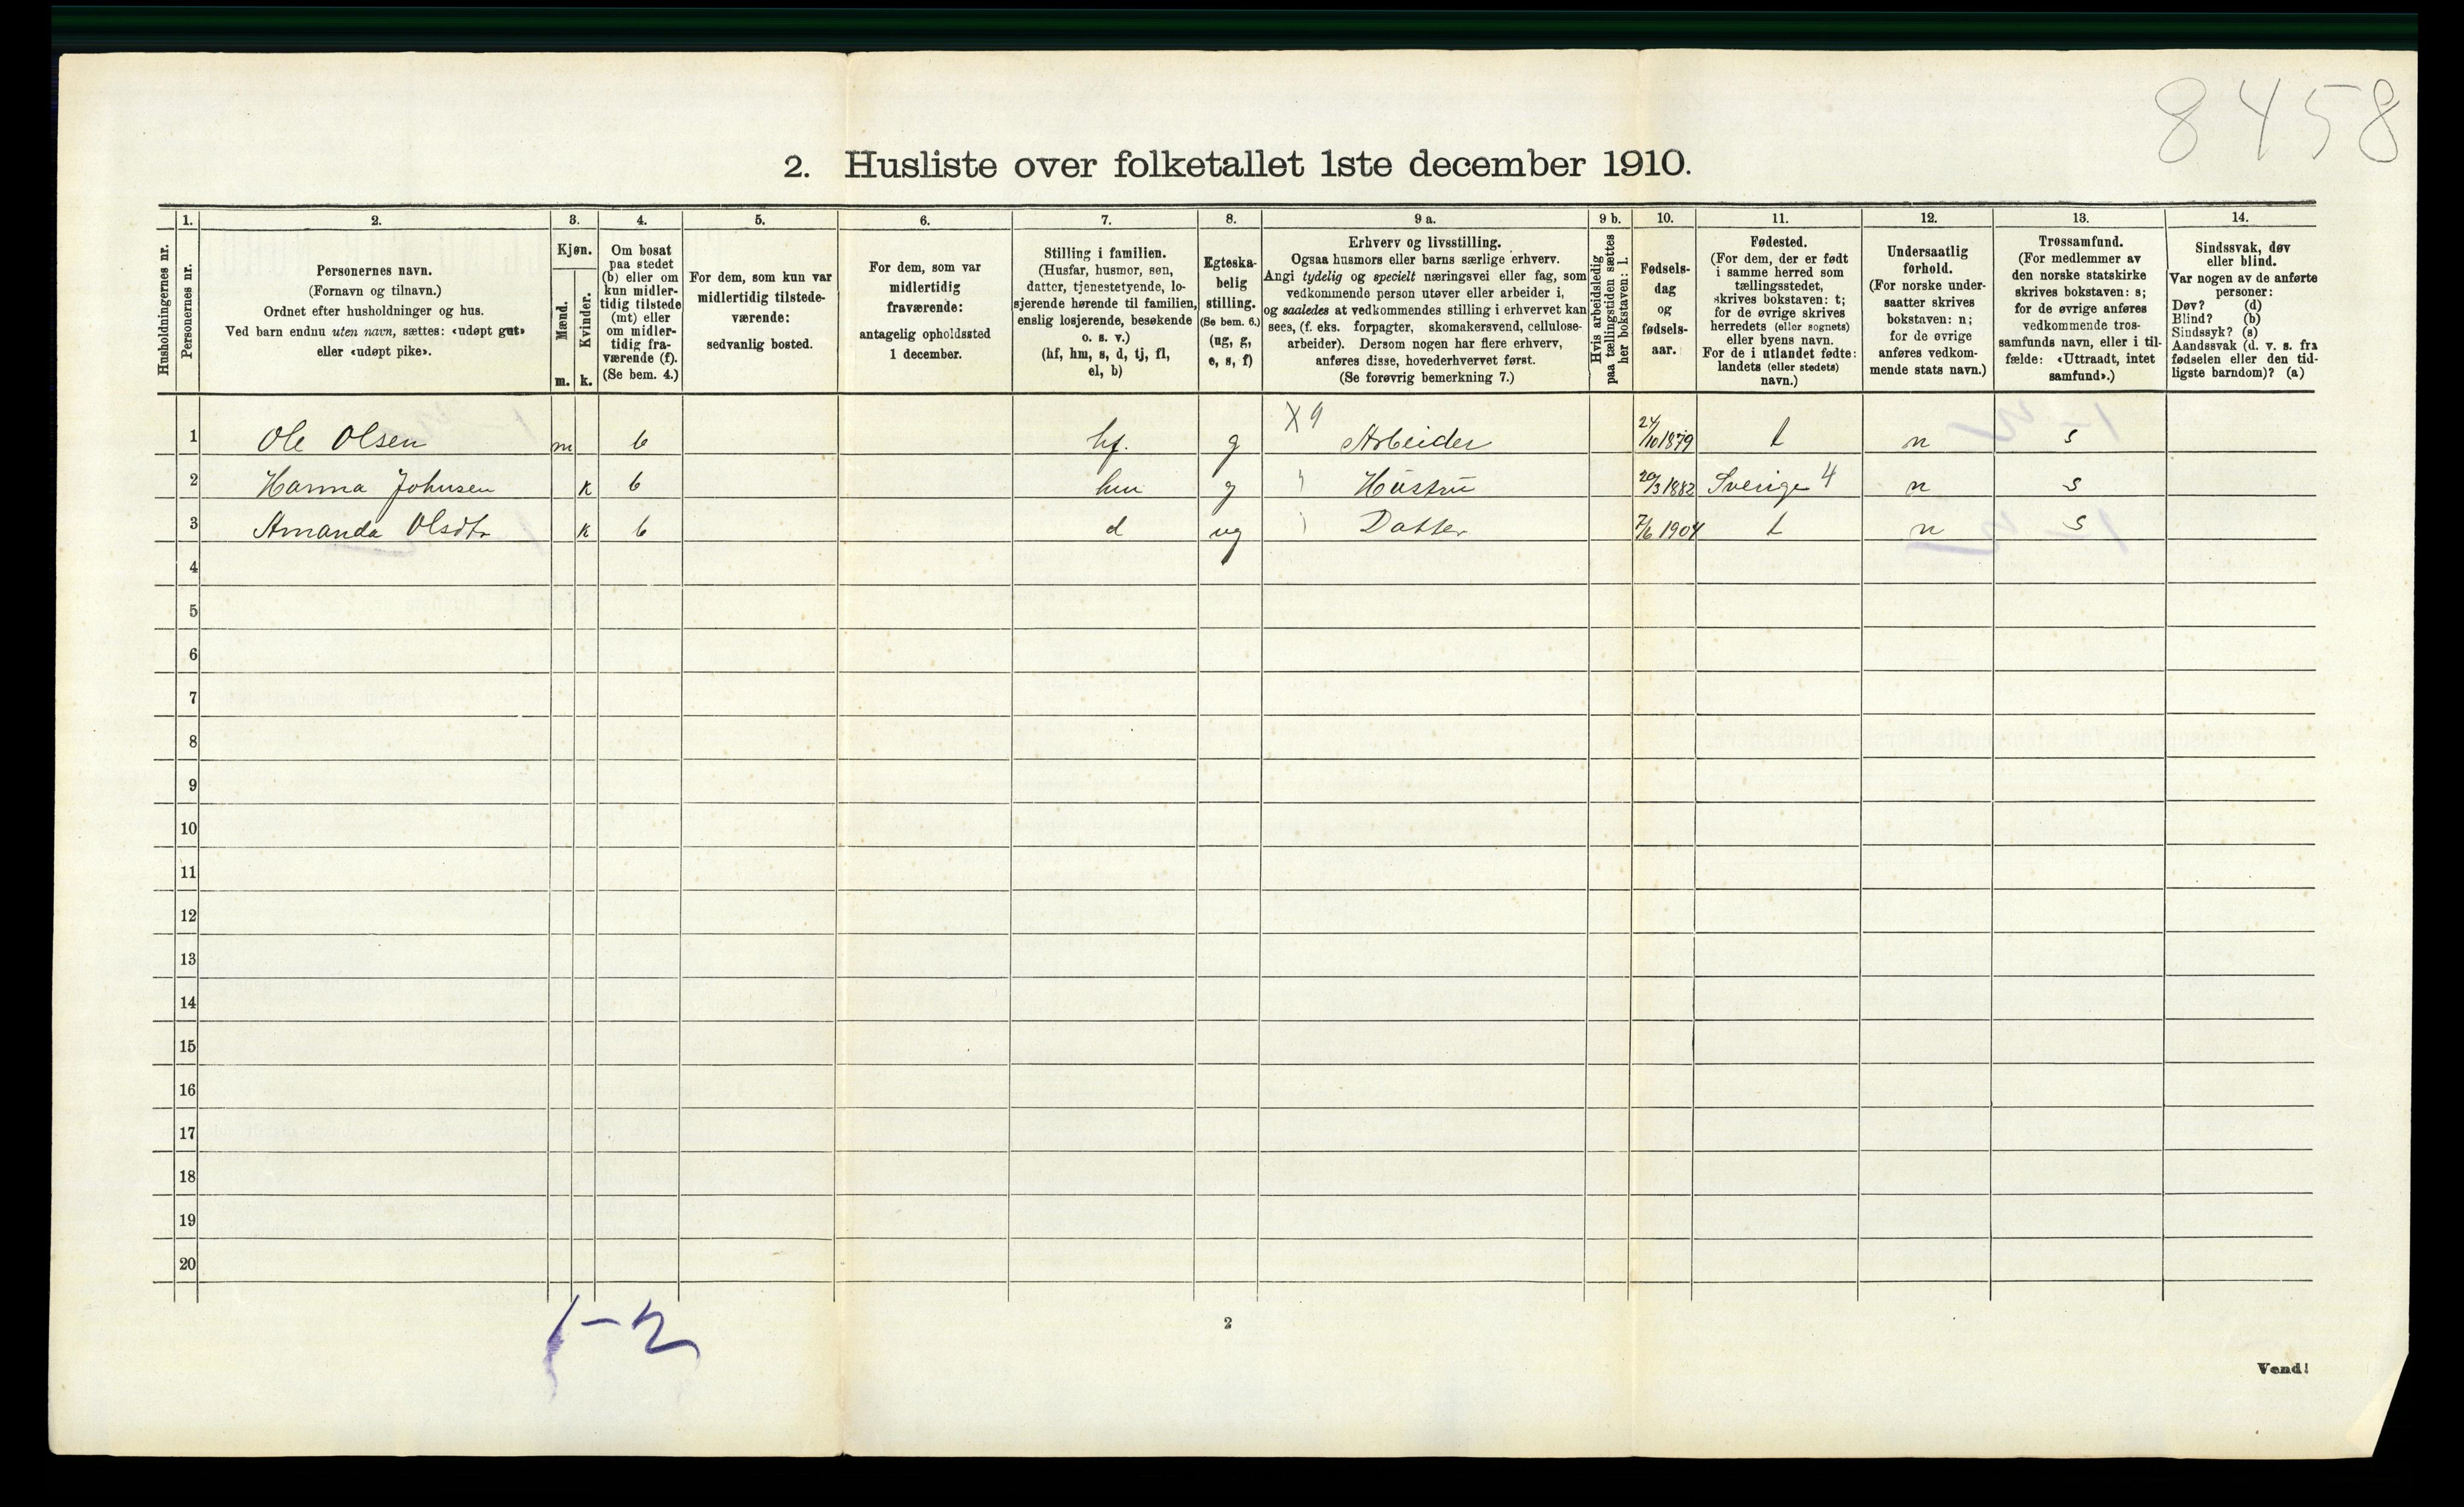 8458
2. Husliste over folketallet 1ste december 1910.
Husholdningernes nr.
1.
Personernes nr.
2.
Personernes navn.
(Fornavn og tilnavn.)
Ordnet efter husholdninger og hus.
Ved barn endnu uten navn, sættes: «udøpt gut»
eller «udøpt pike».
3.
Kjøn.
Mænd.
m.
Kvinder.
k.
4.
Om bosat
paa stedet
(b) eller om
kun midler-
tidig tilstede
(mt) eller
om midler-
tidig fra-
værende (f).
(Se bem. 4.)
5.
For dem, som kun var
midlertidig tilstede-
værende:
sedvanlig bosted.
6.
For dem, som var
midlertidig
fraværende:
antagelig opholdssted
1 december.
7.
Stilling i familien.
(Husfar, husmor, søn,
datter, tjenestetyende, lo-
sjerende hørende til familien,
enslig losjerende, besøkende
o. s. v.)
(hf, hm, s, d, tj, fl,
el, b)
8.
Egteska-
belig
stilling.
(Se bem. 6.)
(ug, g,
e, s, f)
9 a.
Erhverv og livsstilling.
Ogsaa husmors eller barns særlige erhverv.
Angi tydelig og specielt næringsvei eller fag, som
vedkommende person utøver eller arbeider i,
og saaledes at vedkommendes stilling i erhvervet kan
sees, (f. eks. forpagter, skomakersvend, cellulose-
arbeider). Dersom nogen har flere erhverv,
anføres disse, hovederhvervet først.
(Se forøvrig bemerkning 7.)
9 b.
Hvis arbeidsledig
paa tællingstiden sættes
her bokstaven: l.
10.
Fødsels-
dag
og
fødsels-
aar.
11.
Fødested.
(For dem, der er født
i samme herred som
tællingsstedet,
skrives bokstaven: t;
for de øvrige skrives
herredets (eller sognets)
eller byens navn.
For de i utlandet fødte:
landets (eller stedets)
navn.)
12.
Undersaatlig
forhold.
(For norske under-
saatter skrives
bokstaven: n;
for de øvrige
anføres vedkom-
mende stats navn.)
13.
Trossamfund.
(For medlemmer av
den norske statskirke
skrives bokstaven: s;
for de øvrige anføres
vedkommende tros-
samfunds navn, eller i til-
fælde: «Uttraadt, intet
samfund».)
14.
Sindssvak, døv
eller blind.
Var nogen av de anførte
personer:
Døv? (d)
Blind? (b)
Sindssyk? (s)
Aandssvak (d. v. s. fra
fødselen eller den tid-
ligste barndom)? (a)
1 Ole Olsen m b hf. g X9 Arbeider 24/10 1879 t n s
2 Hanna Johnsen k b hm g Hustru 20/3 1882 Sverige 4 n s
3 Amanda Olsdtr k b d ug Datter 7/6 1904 t n s
4
5
6
7
8
9
10
11
12
13
14
15
16
17
18
19
20
1-2
2
Vend!